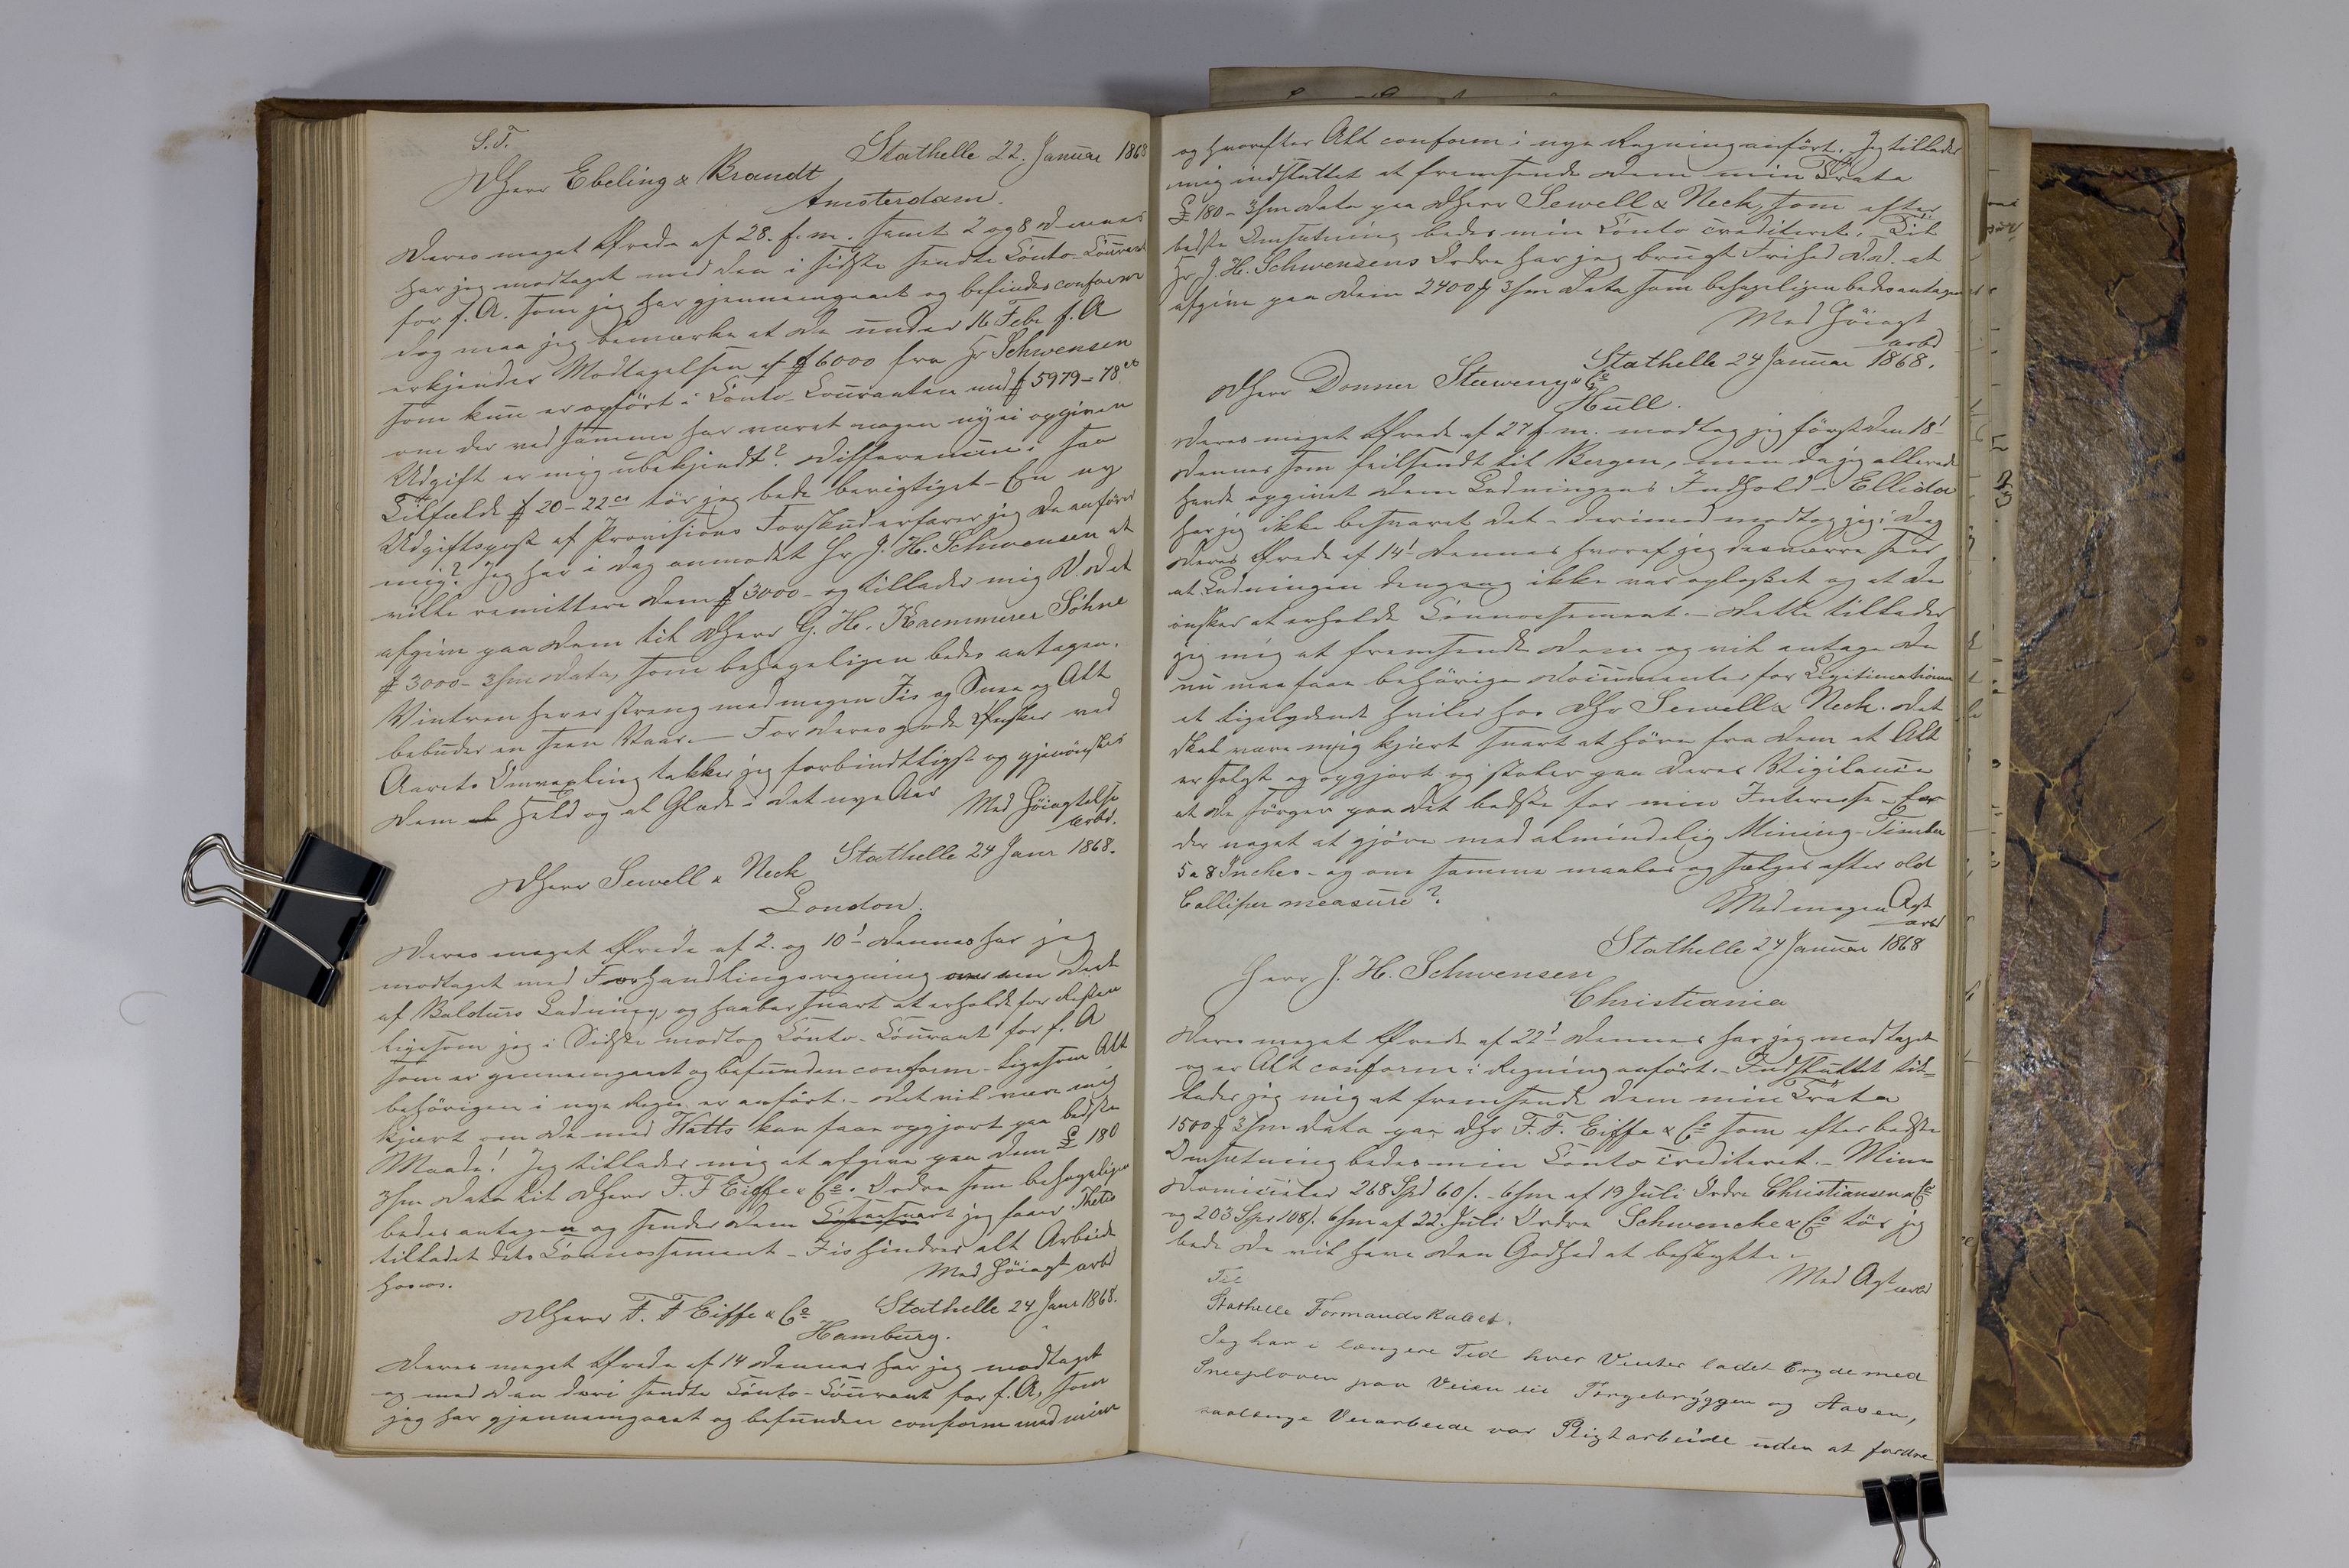 S.T.
Stathelle 22. Januar 1868
DHerr Ebeling & Brandt
Amsterdam.
Deres meget Ærede af 28. f.m. samt 2 og 8 Dennes
har jeg modtaget med den i sidste sendte Conto-Courant
for f.A. som jeg har gjennemgaaet og befindes conform
dog maa jeg bemærke at De under 16 Febr f.A
erkjender Modtagelsen af f 6000 fra Hr Schwensen
som kun er opført i Conto-Couranten med f 5979-78 cs
om der ved samme har været nogen ny ei opgiven
Udgift er mig ubekjendt? Differencen i saa
Tilfælde f 20-22 cs tør jeg bede berigtiget - En ny
Udgiftspost af Provisions Forskud erfarer jeg De anfører
mig? Jeg har i Dag anmodet Hr J. H. Schwensen at
ville remittere Dem f 3000 - og tillader mig D.D. at
afgive paa Dem til DHerr G. H. Kaemmerer Söhne
f 3000 - 3/m Data, som behageligen bedes antagen.
Vintren her er streng med megen Iis og Snee og Alt
bebuder en seen Vaar. - For Deres gode Ønsker ved
Aarets Omvexling takker jeg forbindtligst og gjenønsker
Dem Held og al Glæde i det nye Aar
Med Høiagtelse
ærbd.
Stathelle 24 Janr 1868.
DHerr Sewell & Neck
London.
Deres meget Ærede af 2. og 10' Dennes har jeg
modtaget med Forhandlingsregning over een Deel
af Baldurs Ladning, og haaber snart at erholde for Resten
ligesom jeg i Sidste modtog Conto-Courant for f. A
som er gennemgaaet og befunden conform - ligesom Alt
behørigen i nye Regn er anført. - Det vil være mig
kjært om De med Watts kan faae opgjort paa bedste
Maade! Jeg tillader mig at afgive paa Dem £ 180
3/m Data til DHerr F. F Eiffe & Co. Ordre som behageligen
bedes antagen og sender Dem saasnart jeg faaer Thetis
tilladet dets Connossement - Iis hindrer alt Arbeide
hos os.
Med Høiagt ærbd
Stathelle 24 Janr 1868.
DHerr F. F Eiffe & Co
Hamburg.
Deres meget Ærede af 14 Dennes har jeg modtaget
og med den deri sendte Conto-Courant for f.A, som
jeg har gjennemgaaet og befunden conform med mine
og hvorefter Alt conform i nye Regning anført. Jeg tillader
mig indsluttet at fremsende Dem min Trata
£ 180 - 3/m Data paa DHerr Sewell & Neck, som efter
bedste Omsætning bedes min Conto crediteret. Til
Hr J. H. Schwensens Ordre har jeg brugt Frihed D.D. at
afgive paa Dem 2400 f 3/m Data som behageligen bedes antagen
Med Høiagt
ærbd
Stathelle 24 Januar 1868.
DHerr Donner Steweny & Co
Hull.
Deres meget Ærede af 27 f.m. modtog jeg først den 18'
Dennes som feilsendt til Bergen, men da jeg allerede
havde opgivet Dem Ladningens Indhold i Ellida
har jeg ikke besvaret det - derimod modtog jeg i Dag
Deres Ærede af 14' Dennes hvoraf jeg desværre seer
at Ladningen dengang ikke var oplosset og at De
ønsker at erholde Connossement. - Dette tillader
jeg mig at fremsende Dem og vil antage De
nu maa faae behørige Documenter for Legitimation
et ligelydende hviler hos DHr Sewell & Neck. Det
skal være mig kjært snart at høre fra Dem at Alt
er solgt og opgjort og stoler paa Deres Vigilance
at De sørger paa det bedste for min Interesse. Er
der noget at gjøre med almindelig Mining-Timber
5 a 8 Inches - og om samme maales og sælges efter old
Calliper measure?
Med megen Agt
ærbd
Stathelle 24 Januar 1868
Herr J. H. Schwensen
Christiania
Deres meget Ærede af 22' Dennes har jeg modtaget
og er Alt conform i Regning anført. - Indsluttet til=
lader jeg mig at fremsende Dem min Trata
1500 f 3/m Data paa DHr F. F. Eiffe & Co som efter bedste
Omsætning bedes min Conto crediteret. - Mine
Domicilier 268 Spd 60 /. - 6/m af 19 Juli Ordre Christiansen & Co
og 203 Spr 108 /. 6/m af 22. Juli Ordre Schwencke & Co tør jeg
bede De vil have den Godhed at beskytte. -
Med Agt ærbd
Til
Stathelle Formandskabet.
Jeg har i længere Tid hver Vinter ladet Bryde med
Sneeploven paa Veien til Færgebryggen og Aasen,
saalænge Veiarbeide var Pligtarbeide uden at fordre